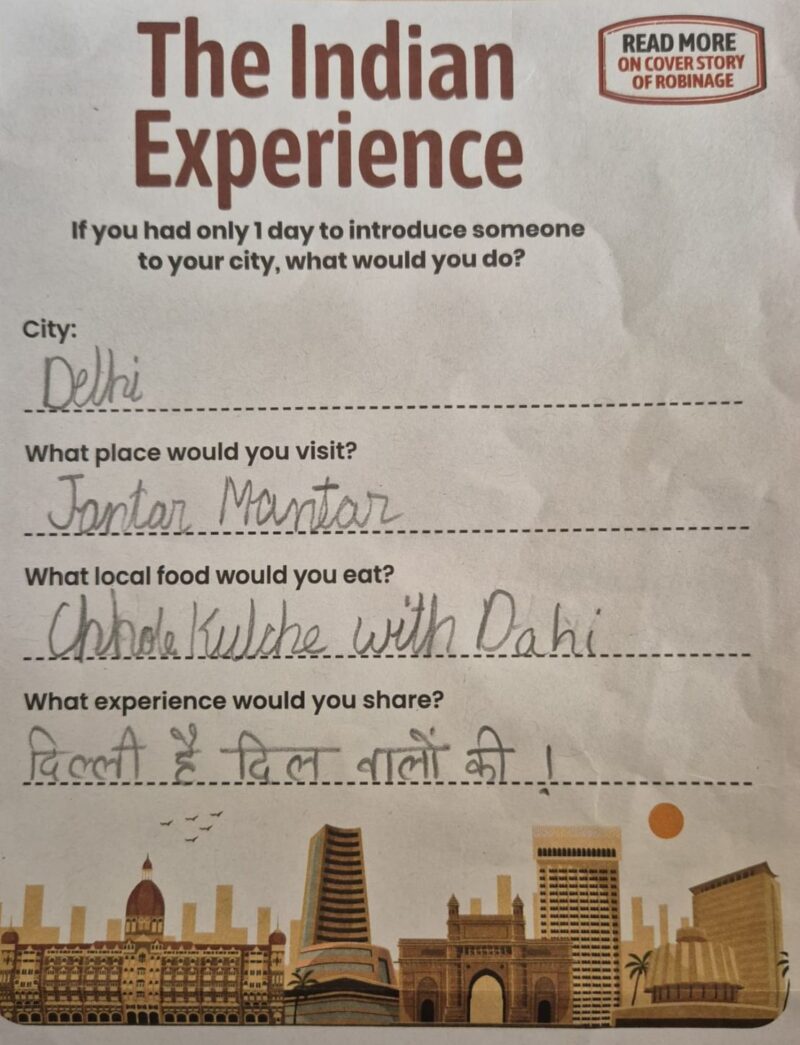 The Indian
Experience
READ MORE
ON COVER STORY
OF ROBINAGE
If you had only 1 day to introduce someone
to your city, what would you do?
City:
Delhi
What place would you visit?
Jantar Mantar
What local food would you eat?
Chhole Kulche with Dahi
What experience would you share?
दिल्ली है दिल वालों की !